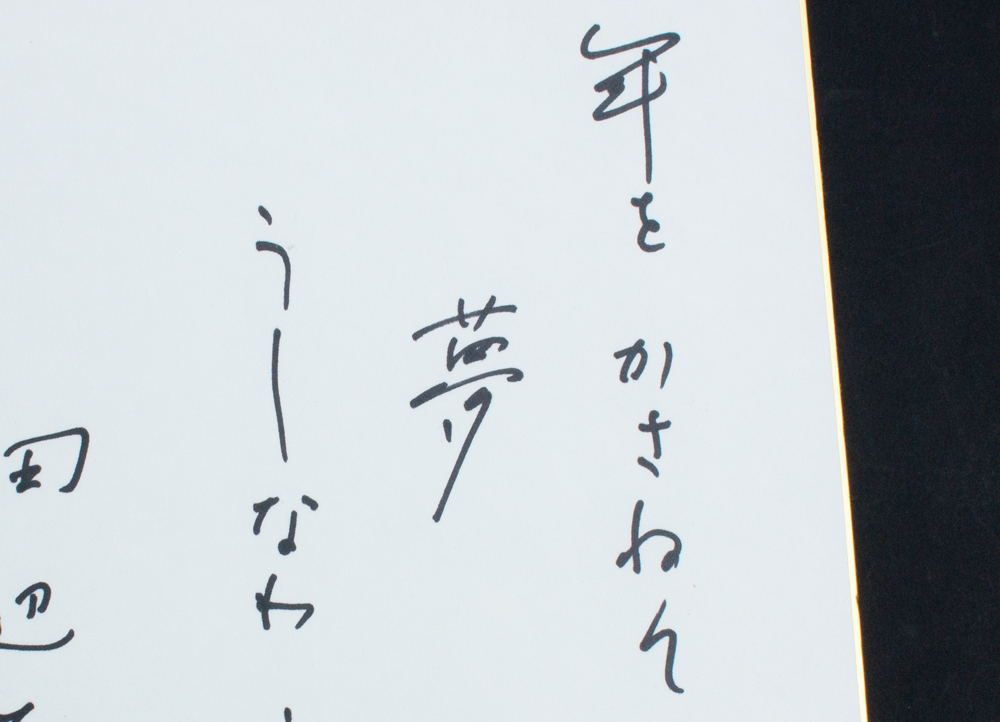 年を かさねて
夢
うしなわ
田辺